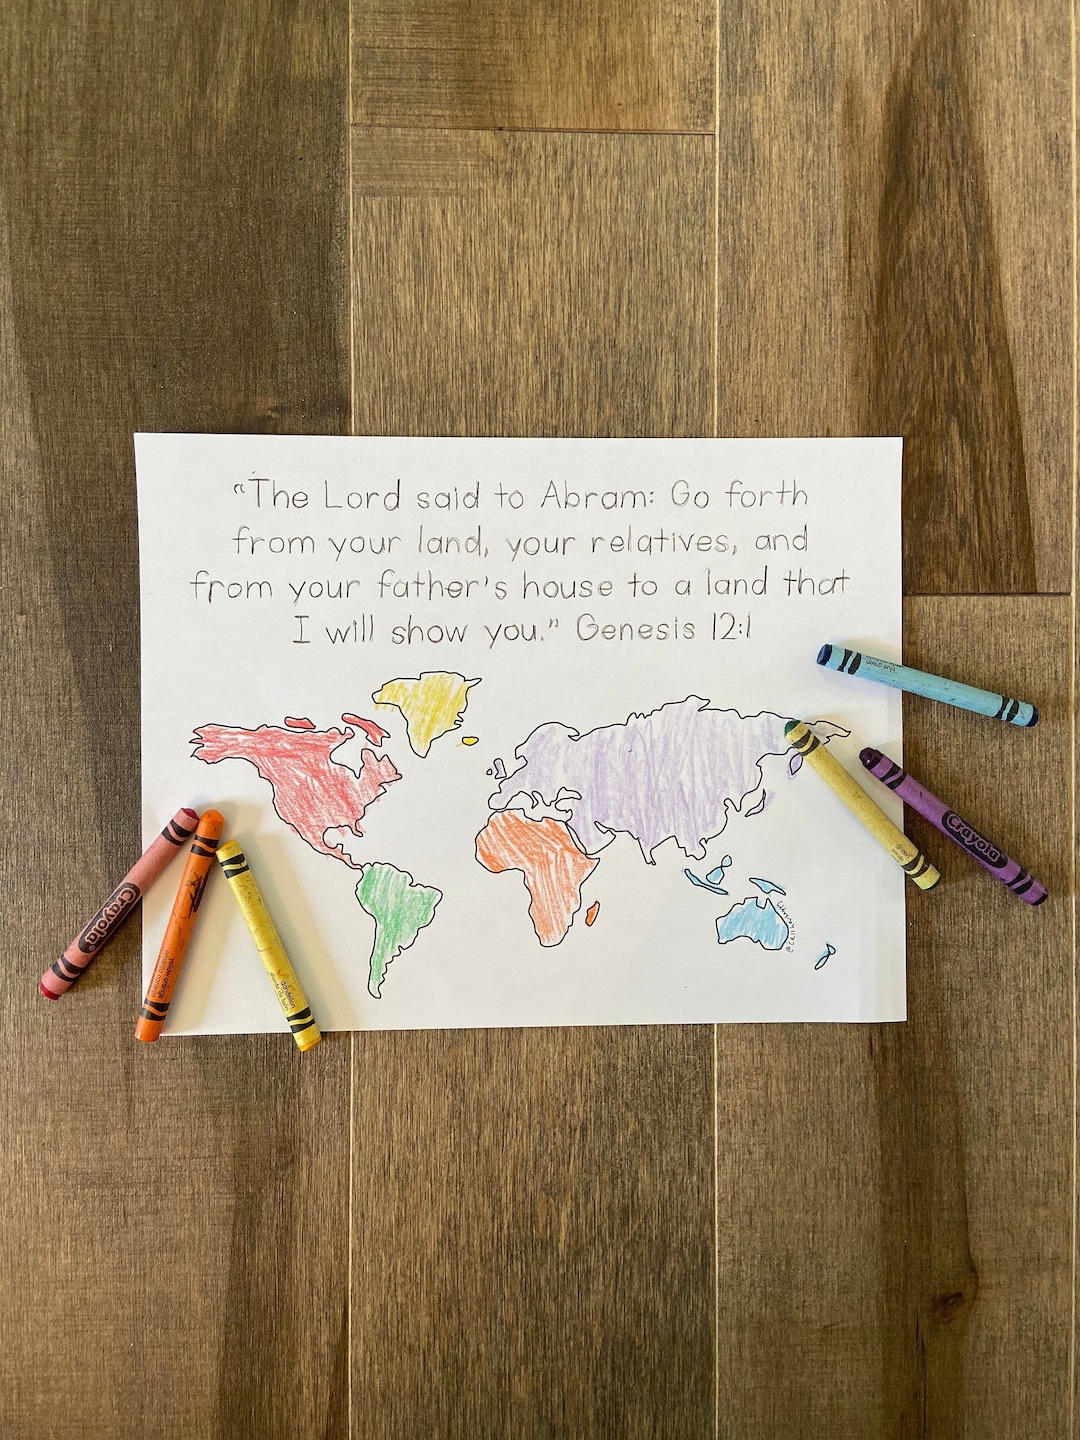 “The Lord said to Abram: Go forth
from your land, your relatives, and
from your father's house to a land that
I will show you.” Genesis 12:1
blue green
Crayola
green
Crayola
dandelion